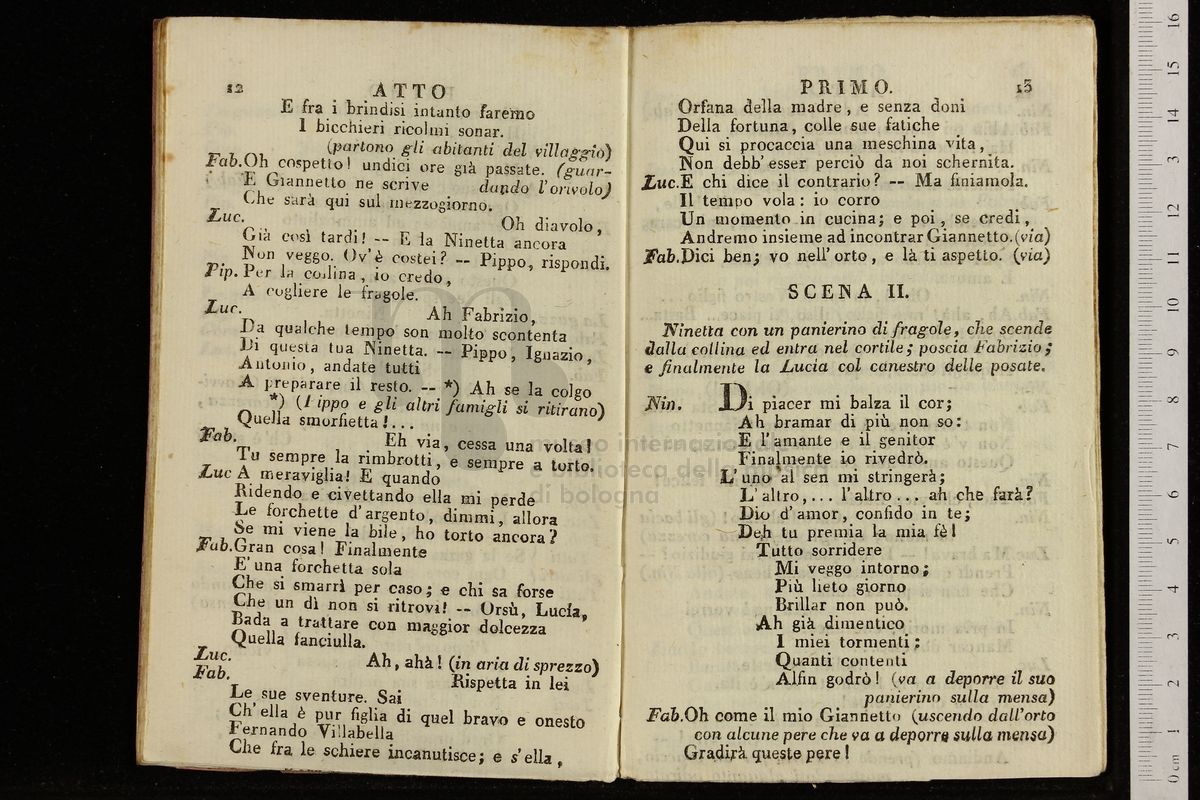 12
ATTO
E fra i brindisi intanto faremo
I bicchieri ricolmi sonar.
(partono gli abitanti del villaggio)
Fab. Oh cospetto! undici ore già passate. (guar-
E Giannetto ne scrive dando l'orivolo)
Che sarà qui sul mezzogiorno.
Luc. Oh diavolo,
Già così tardi! -- E la Ninetta ancora
Non veggo. Ov'è costei? -- Pippo, rispondi.
Pip. Per la collina, io credo,
A cogliere le fragole.
Luc. Ah Fabrizio,
Da qualche tempo son molto scontenta
Di questa tua Ninetta. -- Pippo, Ignazio,
Antonio, andate tutti
A preparare il resto. -- *) Ah se la colgo
*) (Pippo e gli altri famigli si ritirano)
Quella smorfietta!...
Fab. Eh via, cessa una volta!
Tu sempre la rimbrotti, e sempre a torto.
Luc A meraviglia! E quando
Ridendo e civettando ella mi perde
Le forchette d'argento, dimmi, allora
Se mi viene la bile, ho torto ancora?
Fab. Gran cosa! Finalmente
E' una forchetta sola
Che si smarrì per caso; e chi sa forse
Che un dì non si ritrovi! -- Orsù, Lucía,
Bada a trattare con maggior dolcezza
Quella fanciulla.
Luc. Ah, ahà! (in aria di sprezzo)
Fab. Rispetta in lei
Le sue sventure. Sai
Ch'ella è pur figlia di quel bravo e onesto
Fernando Villabella
Che fra le schiere incanutisce; e s'ella,
PRIMO.
13
Orfana della madre, e senza doni
Della fortuna, colle sue fatiche
Qui si procaccia una meschina vita,
Non debb'esser perciò da noi schernita.
Luc. E chi dice il contrario? -- Ma finiamola.
Il tempo vola: io corro
Un momento in cucina; e poi, se credi,
Andremo insieme ad incontrar Giannetto. (via)
Fab. Dici ben; vo nell'orto, e là ti aspetto. (via)
SCENA II.
Ninetta con un panierino di fragole, che scende
dalla collina ed entra nel cortile; poscia Fabrizio;
e finalmente la Lucia col canestro delle posate.
Nin. Di piacer mi balza il cor;
Ah bramar di più non so:
E l'amante e il genitor
Finalmente io rivedrò.
L'uno al sen mi stringerà;
L'altro,... l'altro... ah che farà?
Dio d'amor, confido in te;
Deh tu premia la mia fè!
Tutto sorridere
Mi veggo intorno;
Più lieto giorno
Brillar non può.
Ah già dimentico
I miei tormenti:
Quanti contenti
Alfin godrò! (va a deporre il suo
panierino sulla mensa)
Fab. Oh come il mio Giannetto (uscendo dall'orto
con alcune pere che va a deporre sulla mensa)
Gradirà queste pere!
museo internazionale
e biblioteca della musica
di bologna
0 cm 1 2 3 4 5 6 7 8 9 10 11 12 13 14 15 16